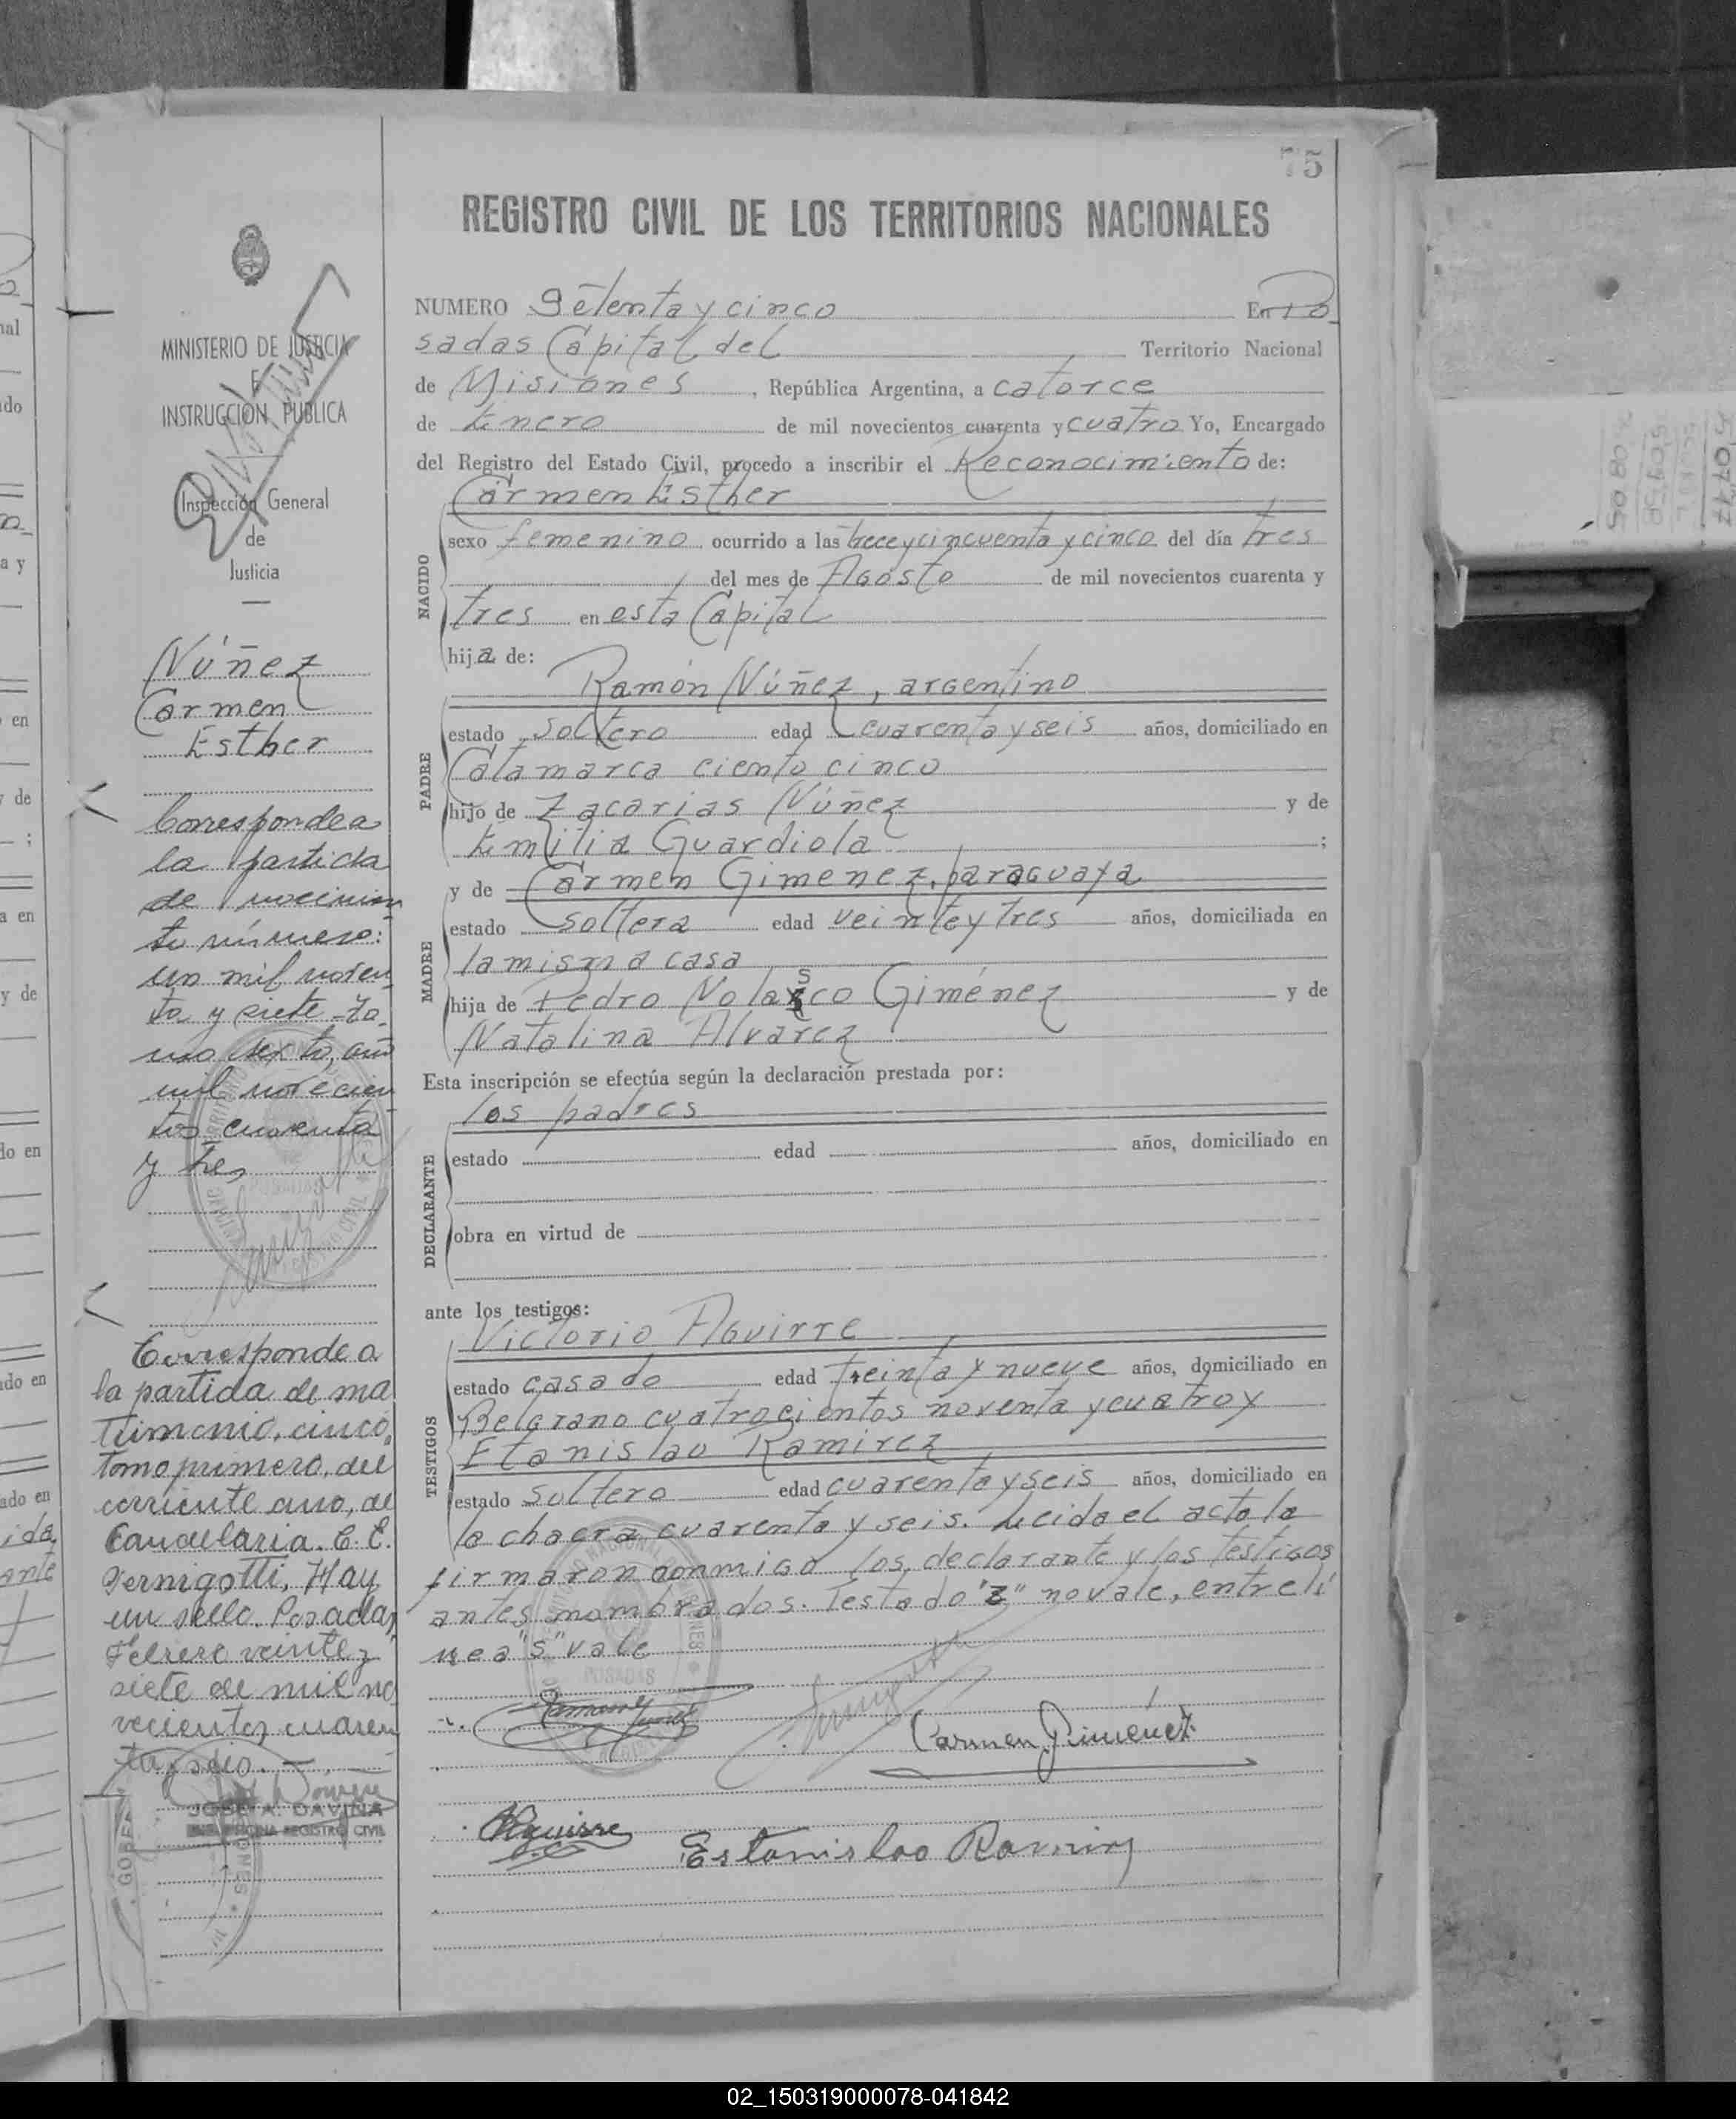 75
REGISTRO CIVIL DE LOS TERRITORIOS NACIONALES
MINISTERIO DE JUSTICIA
E
INSTRUCCIÓN PUBLICA
Inspección General
de
Justicia
Núñez
Carmen
Esther
Corresponde a
la partida
de nacimien
to número:
un mil noven
ta y siete to
mo sexto, año
mil novecien
tos cuarenta
y tres
Corresponde a
la partida de ma
trimonio, cinco,
tomo primero, del
corriente ano, de
Candelaria. C. E.
Pernigotti, Hay
un sello. Posadas,
Febrero veinte y
siete de mil no
vecientos cuaren
ta y seis.
JOSE A. DAVIÑA
REGISTRO CIVIL
NUMERO Setenta y cinco En Po
sadas Capital del Territorio Nacional
de Misiones, República Argentina, a catorce
de Enero de mil novecientos cuarenta y cuatro Yo, Encargado
del Registro del Estado Civil, procedo a inscribir el Reconocimiento de:
NACIDO
Carmen Esther
sexo femenino ocurrido a las trece y cincuenta y cinco del día tres
del mes de Agosto de mil novecientos cuarenta y
tres en esta Capital
hija de:
PADRE
Ramón Núñez, argentino
estado soltero edad cuarenta y seis años, domiciliado en
Catamarca ciento cinco
hijo de Zacarias Núñez y de
Emilia Guardiola ;
MADRE
y de Carmen Gimenez, paraguaya
estado soltera edad veinte y tres años, domiciliada en
la misma casa
s
hija de Pedro Nolazco Giménez y de
Natalina Alvarez
Esta inscripción se efectúa según la declaración prestada por:
DECLARANTE
los padres
estado edad años, domiciliado en
obra en virtud de
ante los testigos:
TESTIGOS
Victorio Aguirre
estado casado edad treinta y nueve años, domiciliado en
Belgrano cuatrocientos noventa y cuatro y
Etanislao Ramirez
estado soltero edad cuarenta y seis años, domiciliado en
la chacra cuarenta y seis. Leida el acta la
firmaron conmigo los declarante y los testigos
antes nombrados. Testado "z" no vale, entreli
nea "s" vale
POSADAS
Carmen Giménez
Aguirre
Estanislao Ramirez
02_150319000078-041842